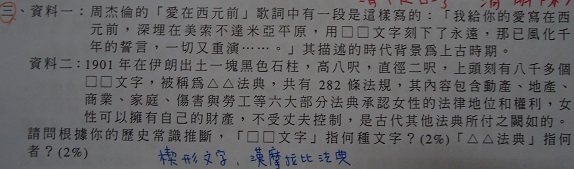 三、資料一：周杰倫的「愛在西元前」歌詞中有一段是這樣寫的：「我給你的愛寫在西
元前，深埋在美索不達米亞平原，用□□文字刻下了永遠，那已風化千
年的誓言，一切又重演……。」其描述的時代背景爲上古時期。
資料二：1901 年在伊朗出土一塊黑色石柱，高八呎，直徑二呎，上頭刻有八千多個
□□文字，被稱爲△△法典，共有 282 條法規，其內容包含動產、地產、
商業、家庭、傷害與勞工等六大部分法典承認女性的法律地位和權利，女
性可以擁有自己的財產，不受丈夫控制，是古代其他法典所付之闕如的。
請問根據你的歷史常識推斷，「□□文字」指何種文字？(2%)「△△法典」指何
者？(2%)
楔形文字，漢摩拉比法典